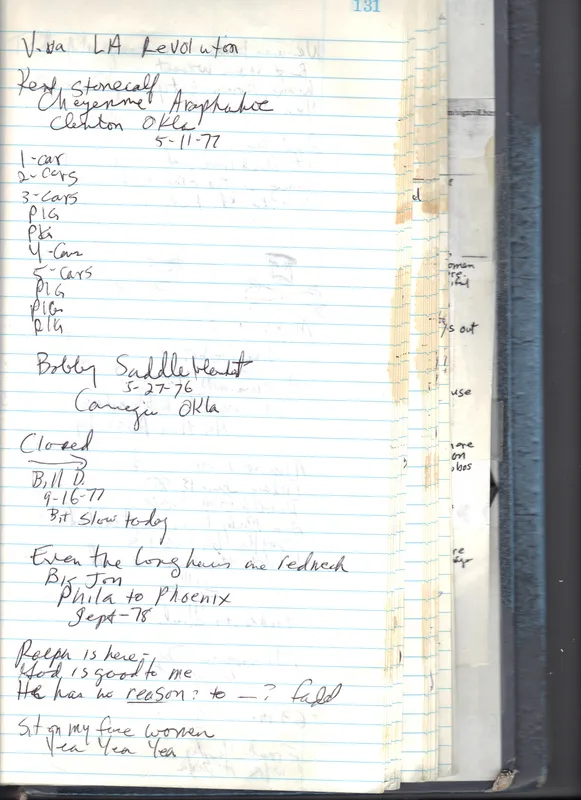 131
Viva LA Revolution
Kent Stonecalf
Cheyenne Araphahoe
Clenton Okla
5-11-77
1-car
2-cars
3-cars
PIG
PIG
4-Cars
5-cars
PIG
PIG
PIG
Bobby Saddleblanket
5-27-76
Carnegie Okla
Closed
Bill D.
9-16-77
Bit slow today
Even the longhairs are redneck
Big Jon
Phila to Phoenix
Sept-78
Ralph is here-
God is good to me
He has no reason: to — ?
Sit on my face women
Yea Yea Yea
d
omen
s out
use
ore
on
obos
re